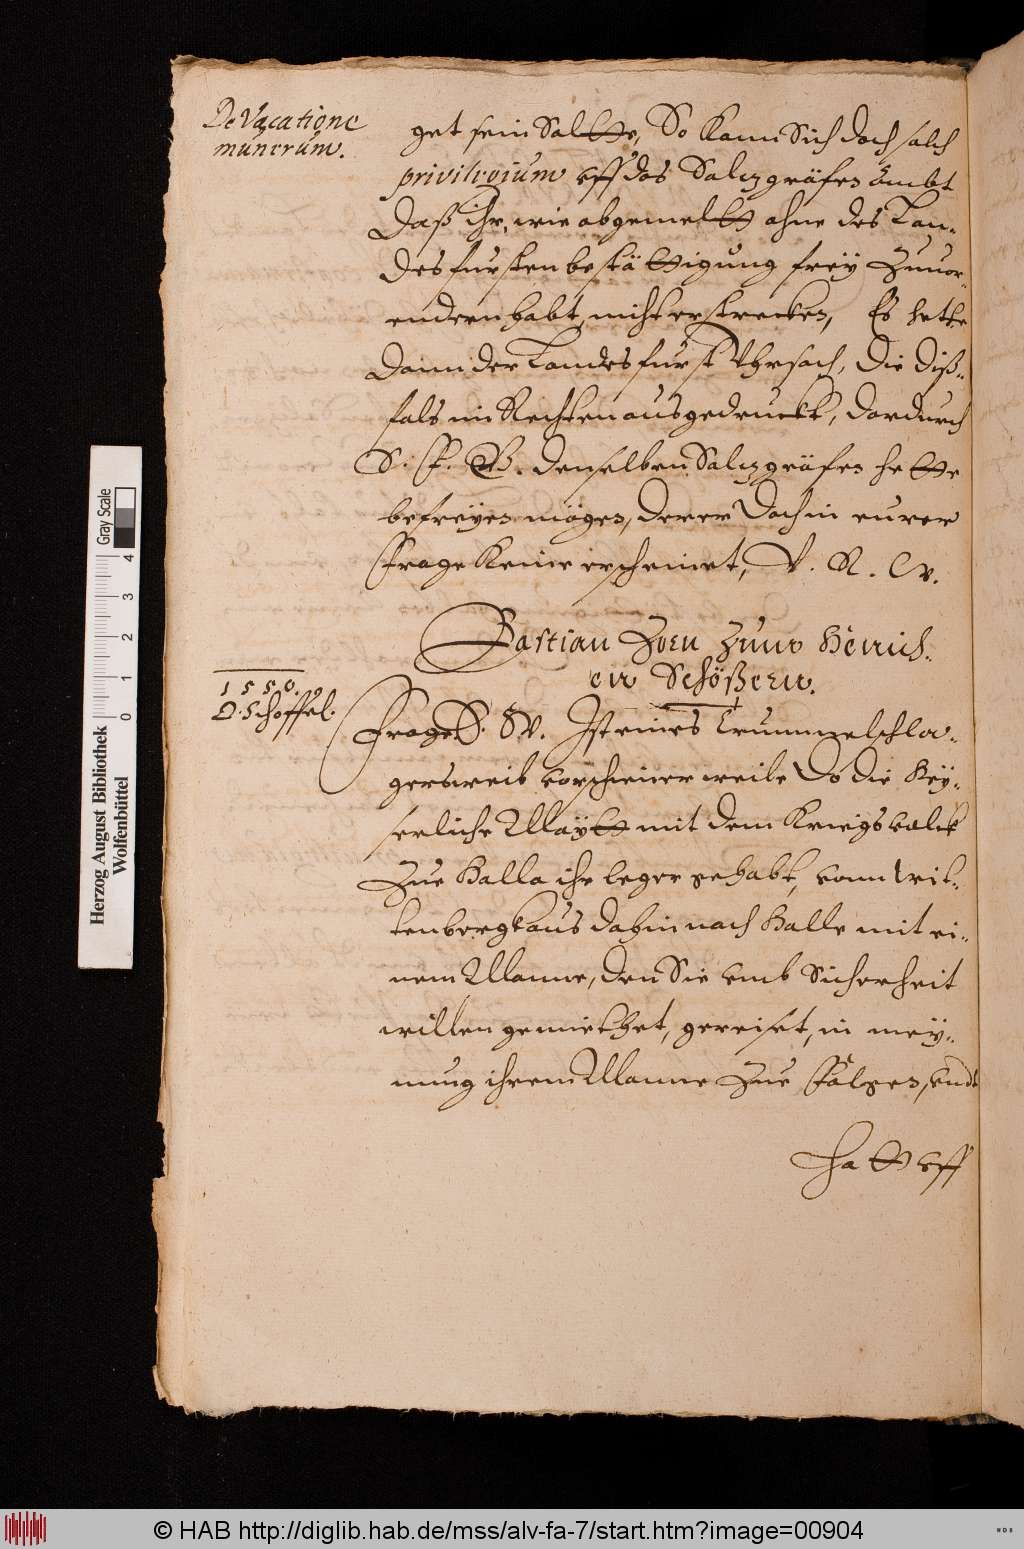 De Vacatione
munerum.
get sein solte, So kann Sich doch solch
privilegium vff das Saltzgräfen Ambt
Daß ihr, wie abgemelt ohne des Lan-
desfursten bestättigung frey Zuuor-
endern habt, nicht erstrecken, Es hette
dann der Landesfurst Vhrsach, die diß-
fals in Rechten ausgedruckt, dardurch
S. F. G. denselben Saltzgräfen hette
befreyen mögen, derer doch in eurer
Frage Keine erscheinet, V. R. W.
Bastian Zum
en Schößern.
1550.
D. Schoffel.
Frage Ist eines Trummelschla-
gers weib vorschiener weile Do die Key-
serliche Maytt mit dem Kriegsvolck
Zue Halla ihr leger gehabt, vonn Wit-
tenbergk aus dahin nach Halle mit ei-
nem Manne, den Sie vmb Sicherheit
willen gemiethet, gereiset, in mey-
nung ihrem Manne Zue folgen, vndt
hatt vff
Herzog August Bibliothek
Wolfenbüttel
Gray Scale
0 1 2 3 4
© HAB http://diglib.hab.de/mss/alv-fa-7/start.htm?image=00904